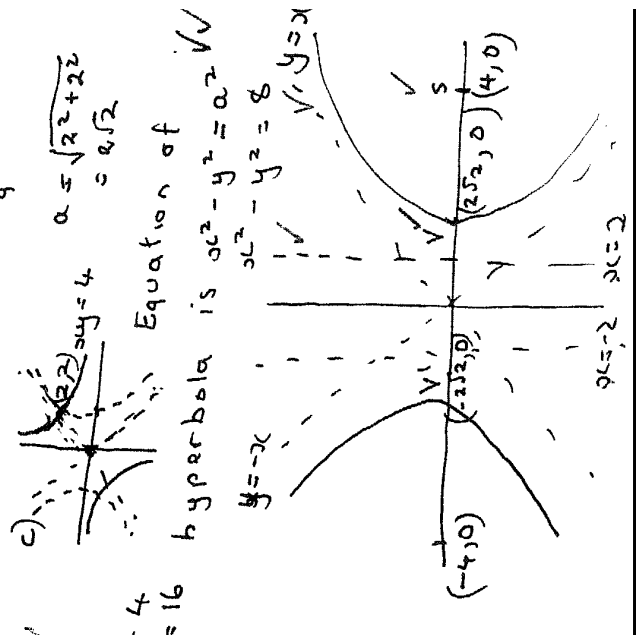 = 4
= 16
c)
(2,2)
xy = 4
a = √2² + 2²
= 2√2
Equation of
hyperbola is x² - y² = a²
x² - y² = 8
y = -x
y = x
(-4,0)
V'
(-2√2, 0)
V
(2√2, 0)
S
(4,0)
x = -2
x = 2